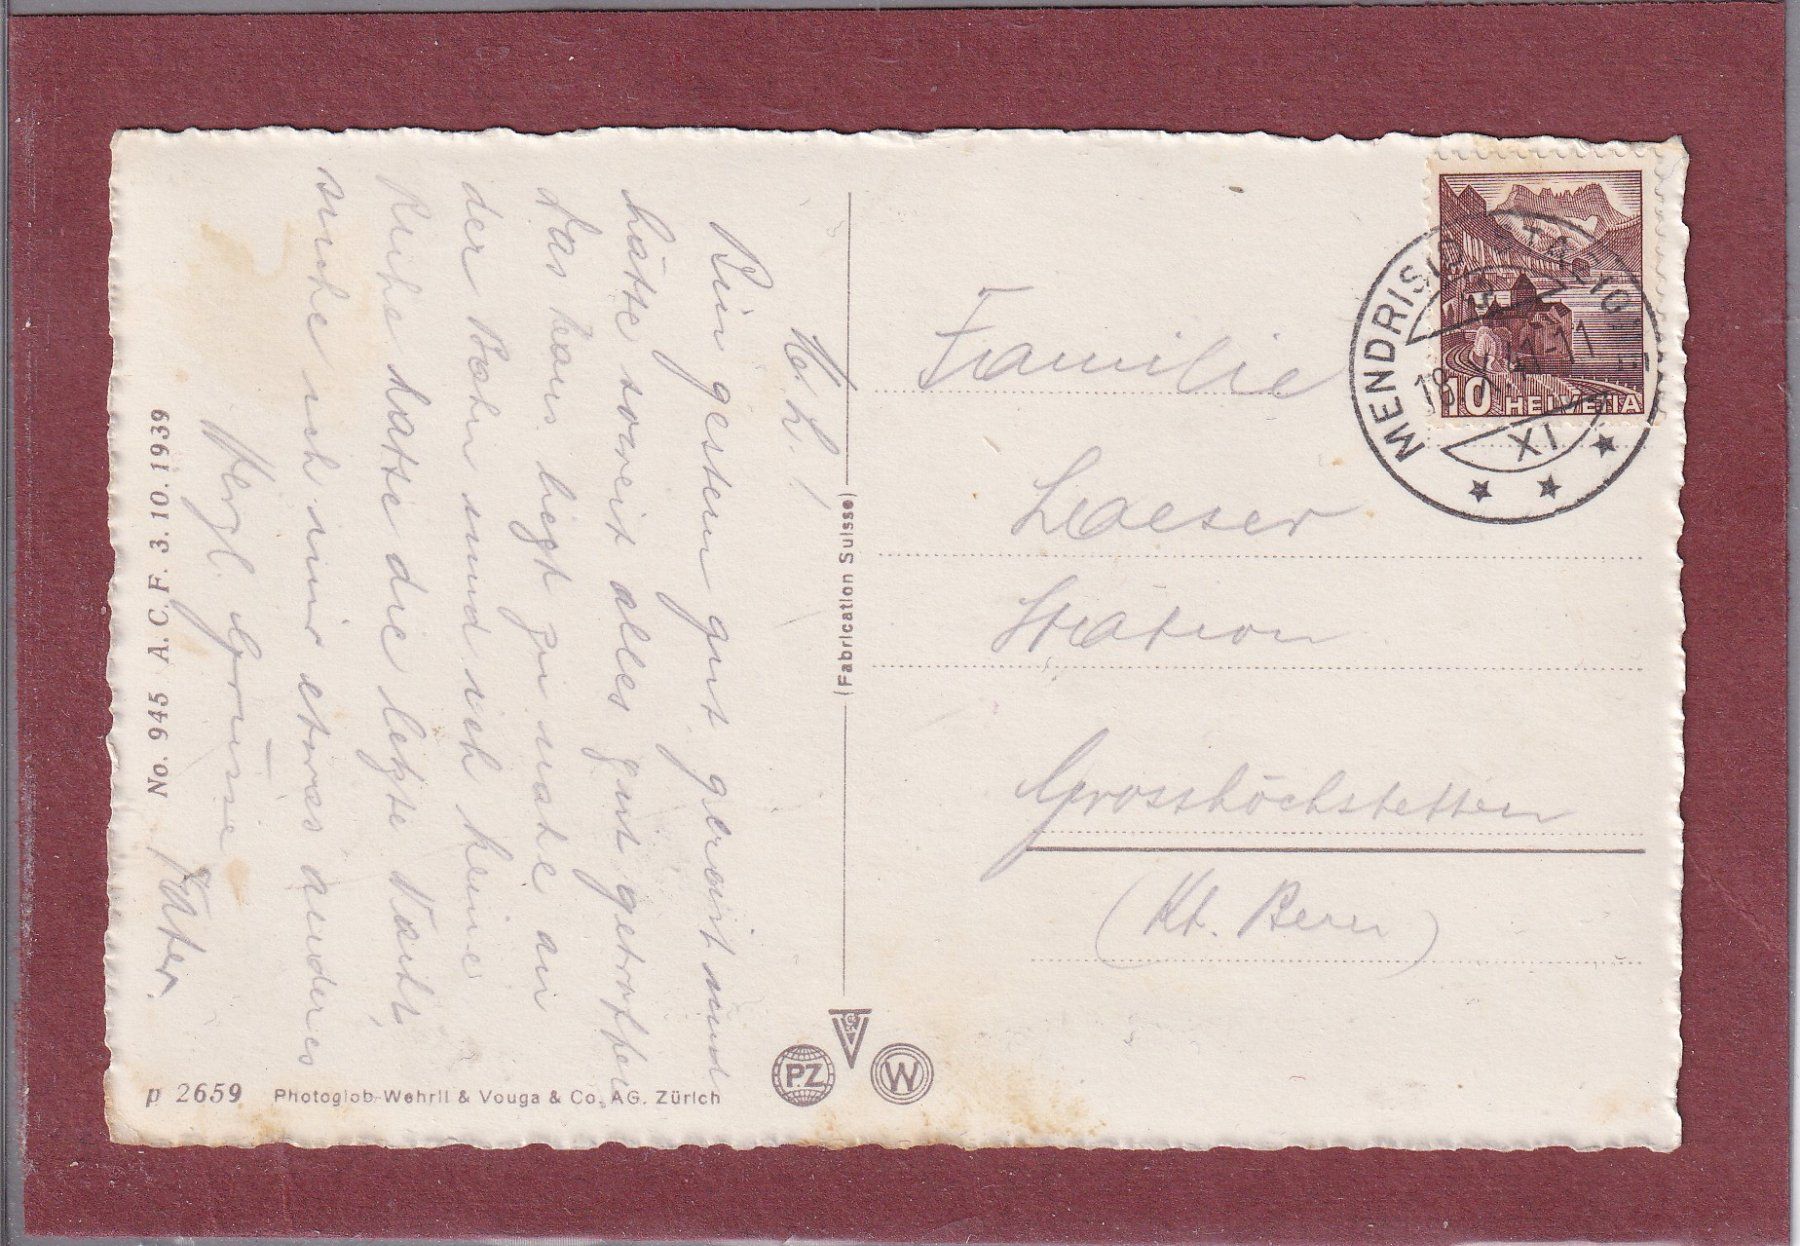 M. L.!
Bin gestern gut gereist und
hätte soweit alles gut getroffen
das haus liegt zu nahe an
der Bahn und ich keine
Ruhe hatte die letzte Nacht,
suche ich mir etwas anderes
Herzl. Grüsse
Vater.
No. 945 A. C. F. 3.10.1939
p 2659 Photoglob-Wehrli & Vouga & Co. AG. Zürich
(Fabrication Suisse)
PZ
W
Familie
Laeser
Station
Grosshöchstetten
(Kt. Bern)
10 HELVETIA
MENDRISIO STAZIONE
XI